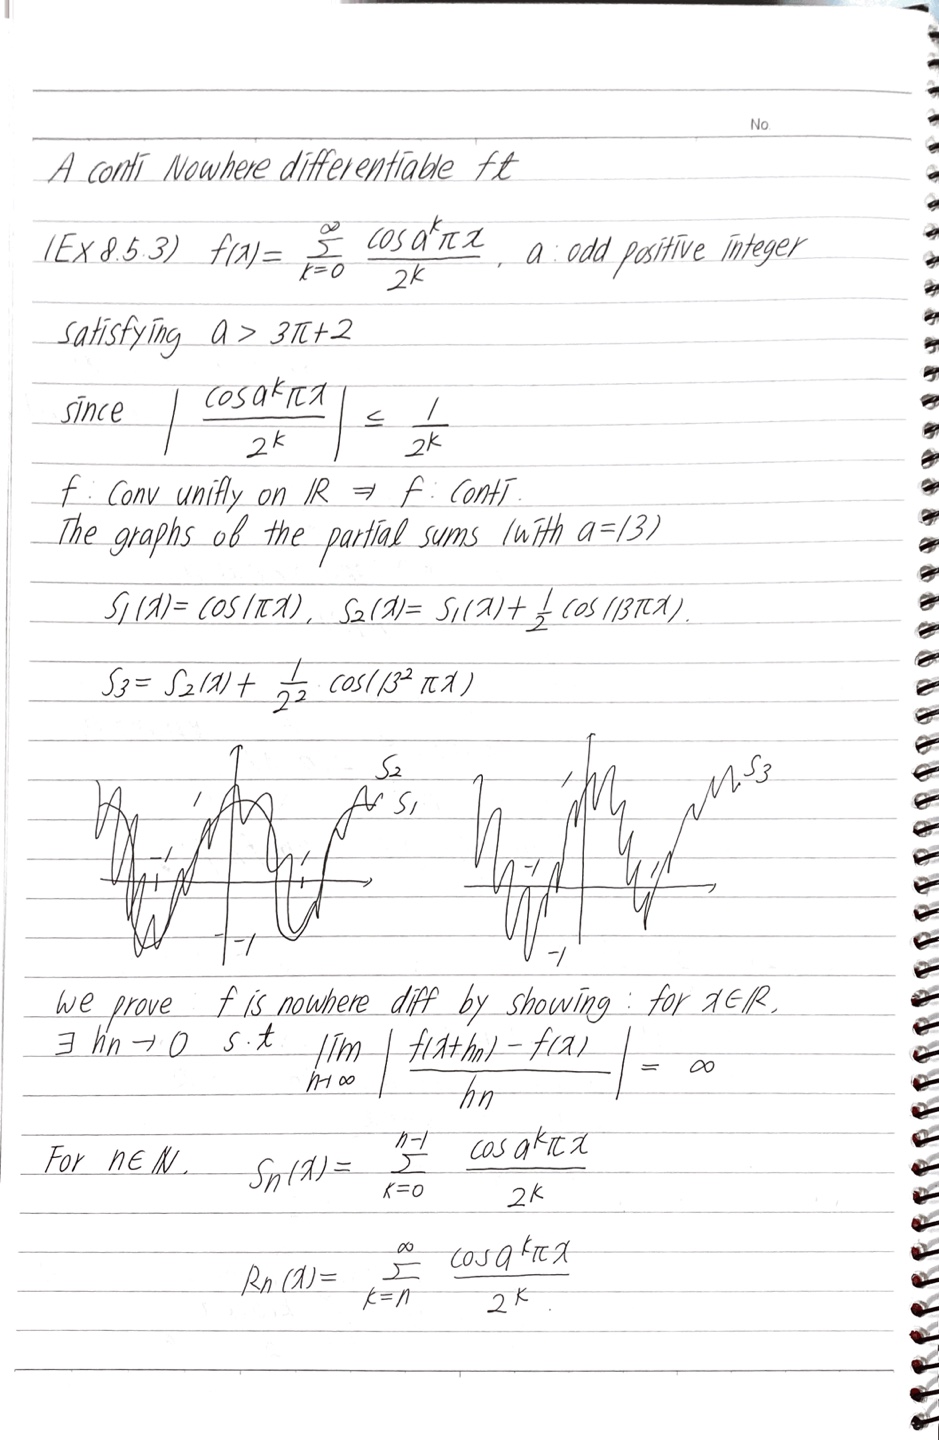 No
A conti Nowhere differentiable ft
(Ex 8.5.3) f(x) = ∑_{k=0}^{∞} cos a^k πx / 2^k , a : odd positive integer
satisfying a > 3π+2
since | cos a^k πx / 2^k | ≤ 1 / 2^k
f : Conv unifly on ℝ ⇒ f : Conti.
The graphs of the partial sums (with a=13)
S1(x) = cos(πx), S2(x) = S1(x) + 1/2 cos(13πx).
S3 = S2(x) + 1/2^2 cos(13^2 πx)
S2
S1
1
-1
1
-1
S3
1
-1
1
-1
We prove f is nowhere diff by showing : for x∈ℝ,
∃ hn → 0 s.t lim_{n→∞} | f(x+hn) - f(x) / hn | = ∞
For n∈ℕ. Sn(x) = ∑_{k=0}^{n-1} cos a^k πx / 2^k
Rn(x) = ∑_{k=n}^{∞} cos a^k πx / 2^k .